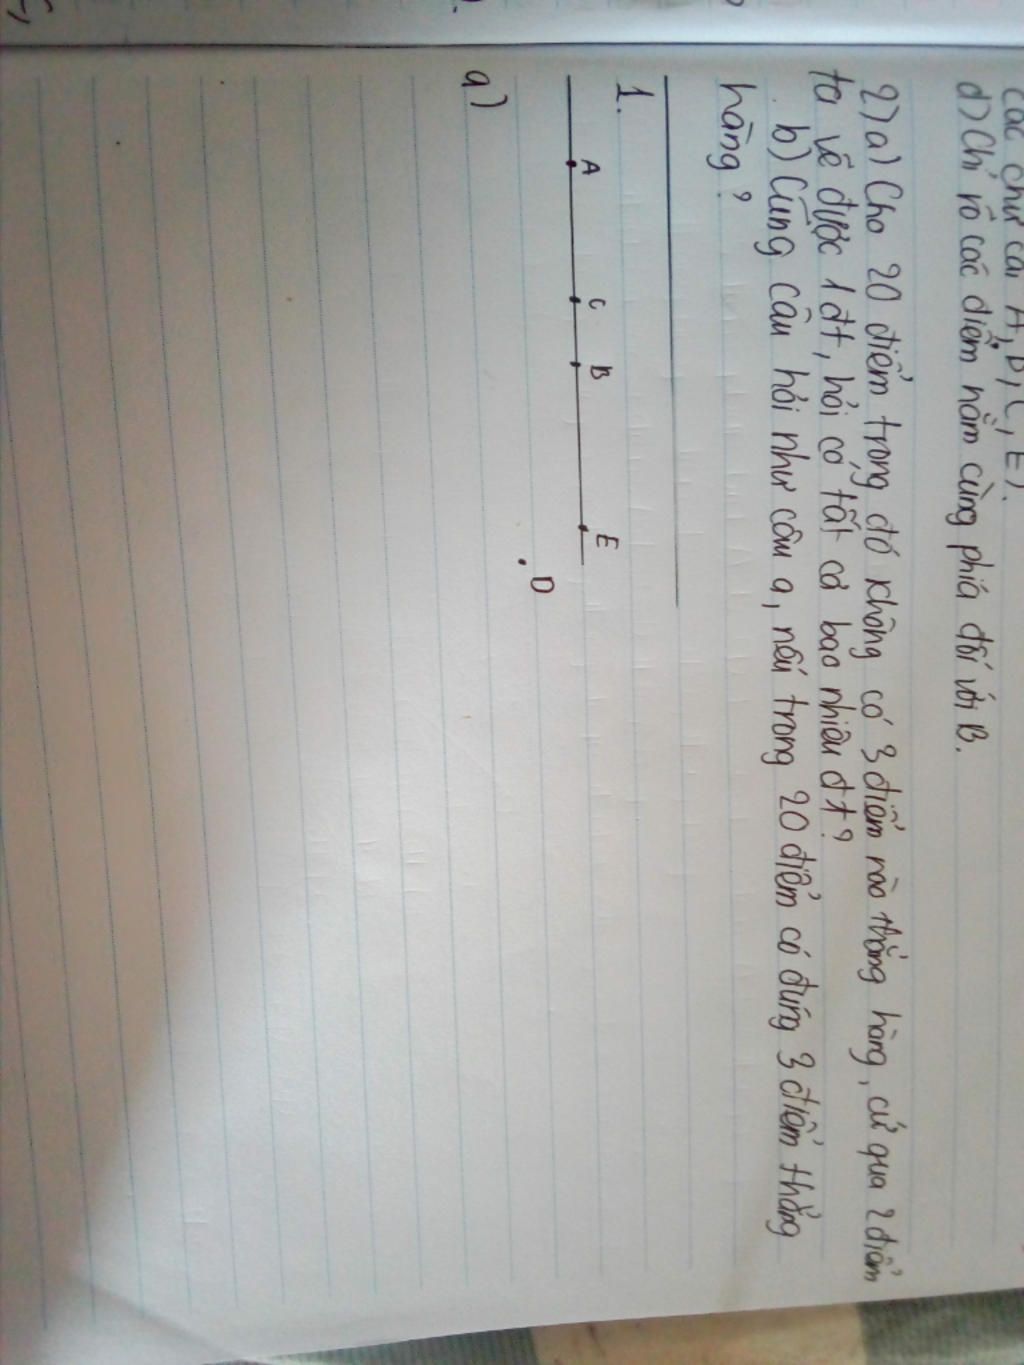 các chữ cái A, B, C, E).
d) Chỉ rõ các điểm nằm cùng phía đối với B.
2) a) Cho 20 điểm trong đó không có 3 điểm nào thẳng hàng, cứ qua 2 điểm
ta vẽ được 1 đt, hỏi có tất cả bao nhiêu đt?
b) Cũng câu hỏi như câu a, nếu trong 20 điểm có đúng 3 điểm thẳng
hàng?
1.
A C B E
D
a)